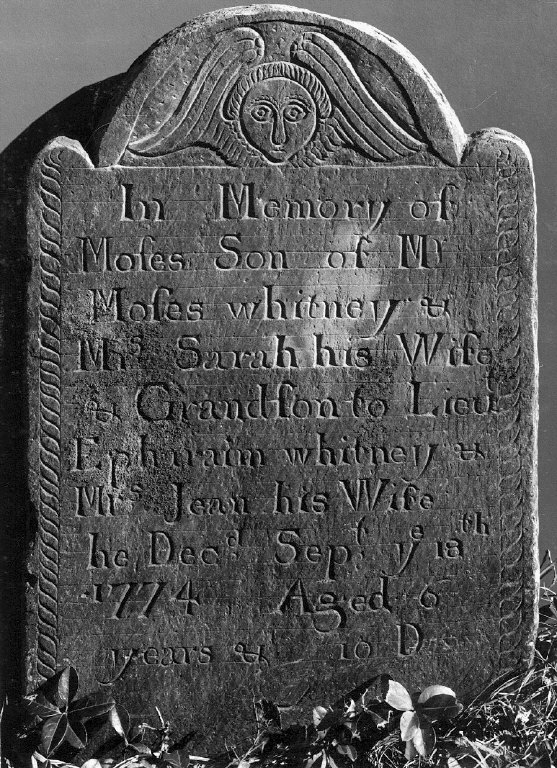 In Memory of
Moſes Son of Mr
Moſes whitney &
Mrs Sarah his Wife
& Grandſon to Lieut
Ephraim whitney &
Mrs Jean his Wife
he Decd Sept ye 18th
1774 Aged 6
years & 10 Days